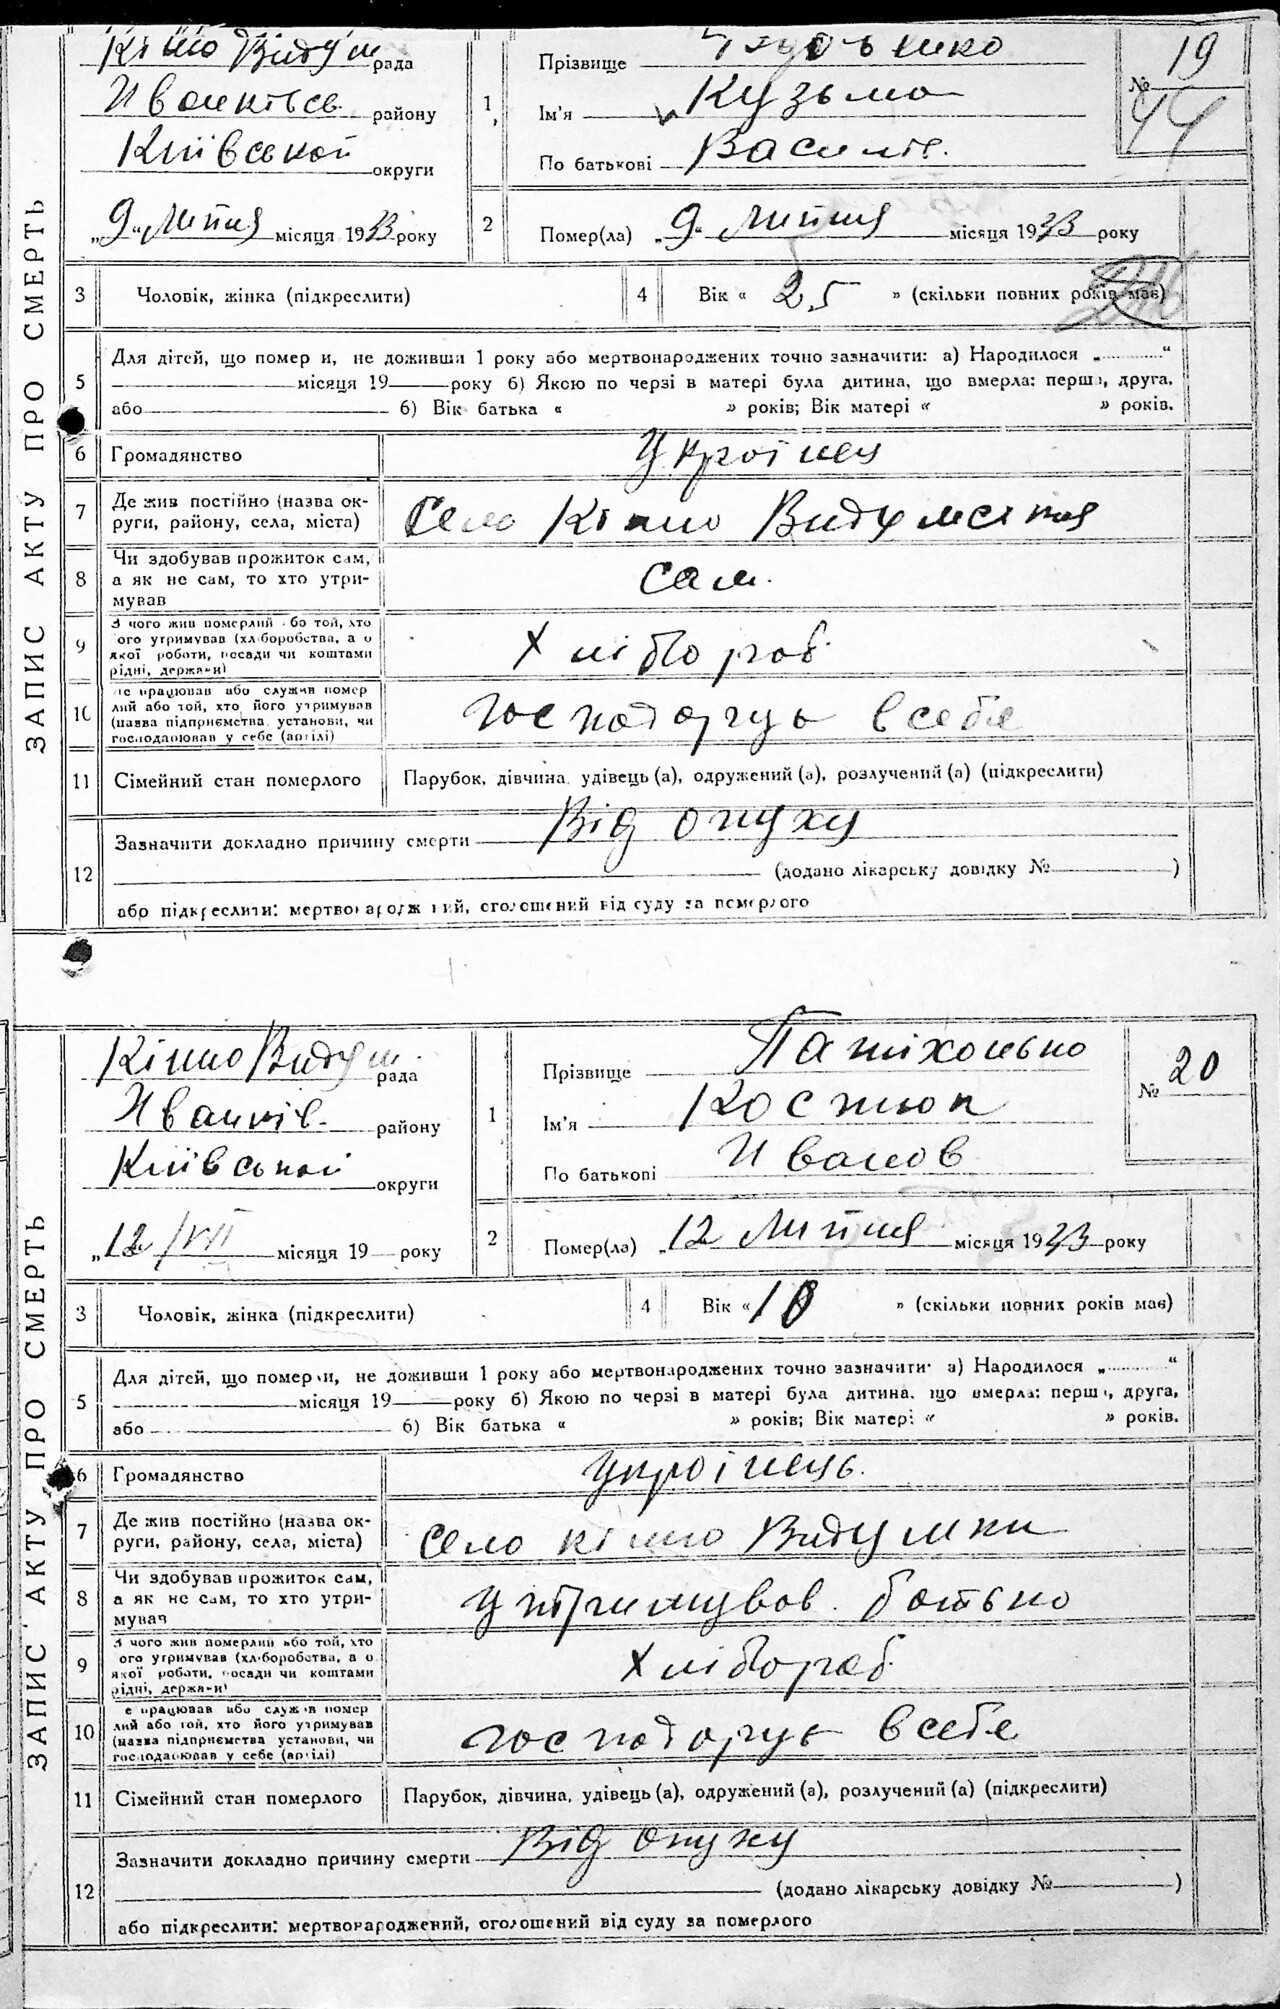 ЗАПИС АКТУ ПРО СМЕРТЬ
Кінно Видум рада
Іванківсь району
Київської округи
„9“ Липня місяця 1933 року
1
Прізвище
Ім'я Кузьма
По батькові Василь.
№ 19
44
2 Помер(ла) „9“ Липня місяця 1933 року
3 Чоловік, жінка (підкреслити)
4 Вік « 25 » (скільки повних років має)
5 Для дітей, що помер и, не доживши 1 року або мертвонароджених точно зазначити: а) Народилося „ “
місяця 19 року б) Якою по черзі в матері була дитина, що вмерла: перша, друга,
або б) Вік батька « » років; Вік матері « » років.
6 Громадянство Українец
7 Де жив постійно (назва ок-
руги, району, села, міста) село Кінно
8 Чи здобував прожиток сам,
а як не сам, то хто утри-
мував сам.
9 З чого жив померлий або той, хто
його утримував (хліборобства, а о
якої роботи, посади чи коштами
рідні, держави) Хлібороб
10 де працював або служив помер
лий або той, хто його утримував
(назва підприємства установи, чи
господарював у себе (артілі) господарує в себе
11 Сімейний стан померлого Парубок, дівчина, удівець (а), одружений (а), розлучений (а) (підкреслити)
12 Зазначити докладно причину смерти Від опуху
(додано лікарську довідку № )
або підкреслити: мертвонароджений, оголошений від суду за померлого
ЗАПИС АКТУ ПРО СМЕРТЬ
Кінно Видум. рада
Иванків. району
Київської округи
„12/VII місяця 19 року
1
Прізвище
Ім'я Костюк
По батькові Иванов
№ 20
2 Помер(ла) „12 Липня місяця 1933 року
3 Чоловік, жінка (підкреслити)
4 Вік « 10 » (скільки повних років має)
5 Для дітей, що померли, не доживши 1 року або мертвонароджених точно зазначити: а) Народилося „ “
місяця 19 року б) Якою по черзі в матері була дитина, що вмерла: перша, друга,
або б) Вік батька « » років; Вік матері « » років.
6 Громадянство Українець.
7 Де жив постійно (назва ок-
руги, району, села, міста) село кінно Видумки
8 Чи здобував прожиток сам,
а як не сам, то хто утри-
мував утримував. батько
9 З чого жив померлий або той, хто
його утримував (хліборобства, а о
якої роботи, посади чи коштами
рідні, держави) Хлібороб
10 де працював або служив помер
лий або той, хто його утримував
(назва підприємства установи, чи
господарював у себе (артілі) господарує в себе
11 Сімейний стан померлого Парубок, дівчина, удівець (а), одружений (а), розлучений (а) (підкреслити)
12 Зазначити докладно причину смерти Від опуху
(додано лікарську довідку № )
або підкреслити: мертвонароджений, оголошений від суду за померлого